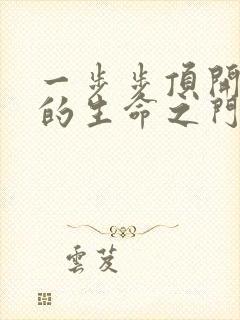 一步步頂開
的生命之門
雲芨